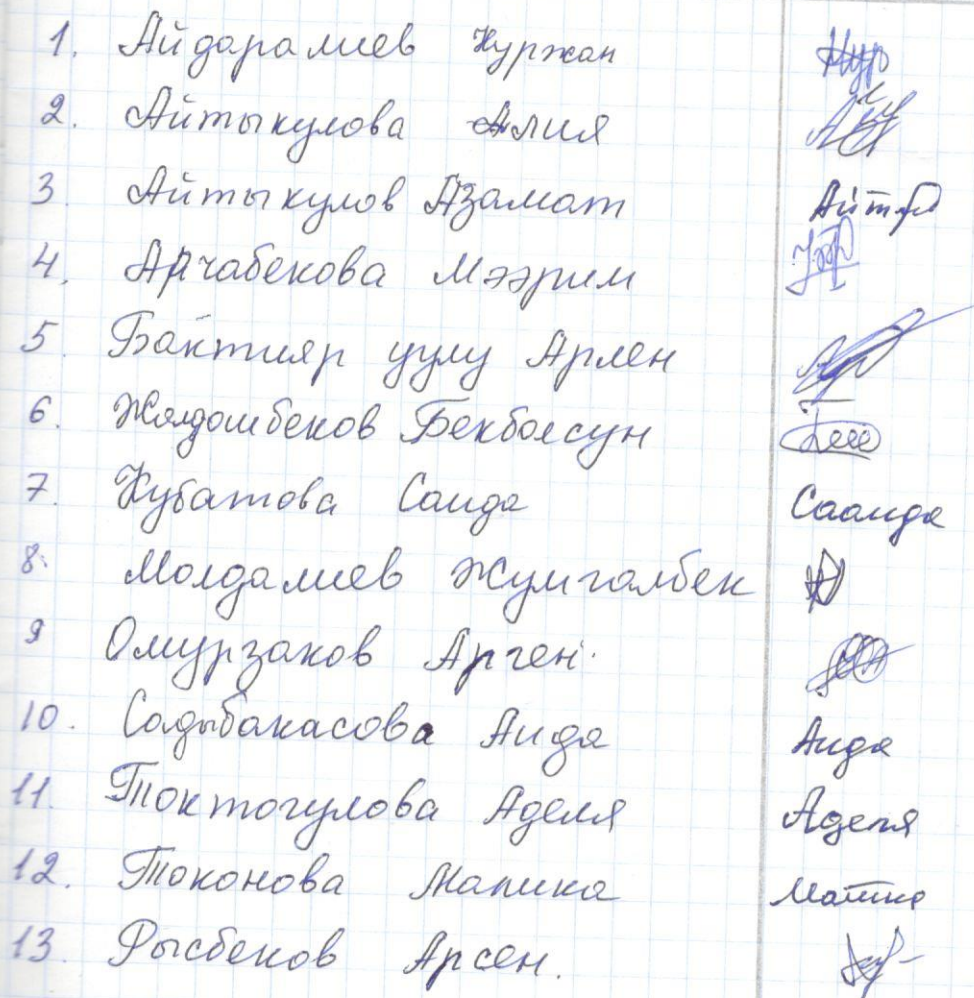 1. Айдаралиев Нуржан
2. Айтыкулова Алия
3. Айтыкулов Азамат Айт
4. Арчабекова Мээрим
5. Бактияр уулу Арлен
6. Жолдошбеков Бекболсун
7. Кубатова Саида Сааида
8. Молдалиев Жумгалбек
9 Омурзаков Арген.
10. Садыбакасова Аида Аида
11. Токтогулова Аделя Аделя
12. Токонова Малика
13. Рысбеков Арсен.